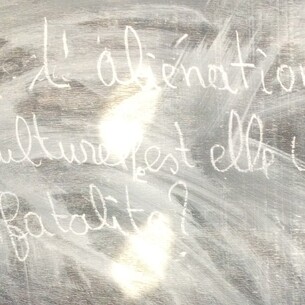 L'aliénation
culturelle est elle u
fatalité?